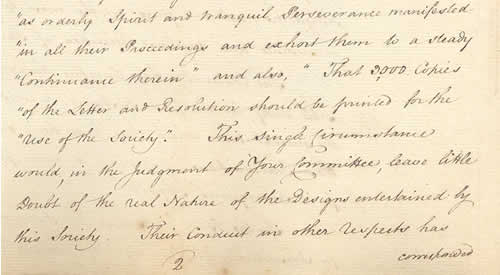 "as orderly Spirit and tranquil Perseverance manifested
"in all their Proceedings and exhort them to a steady
"Continuance therein" and also, "That 3000 Copies
"of the Letter and Resolution should be printed for the
"Use of the Society". This single Circumstance
would, in the Judgment of Your Committee, leave little
Doubt of the real Nature of the Designs entertained by
this Society. Their Conduct in other respects has
corresponded
2